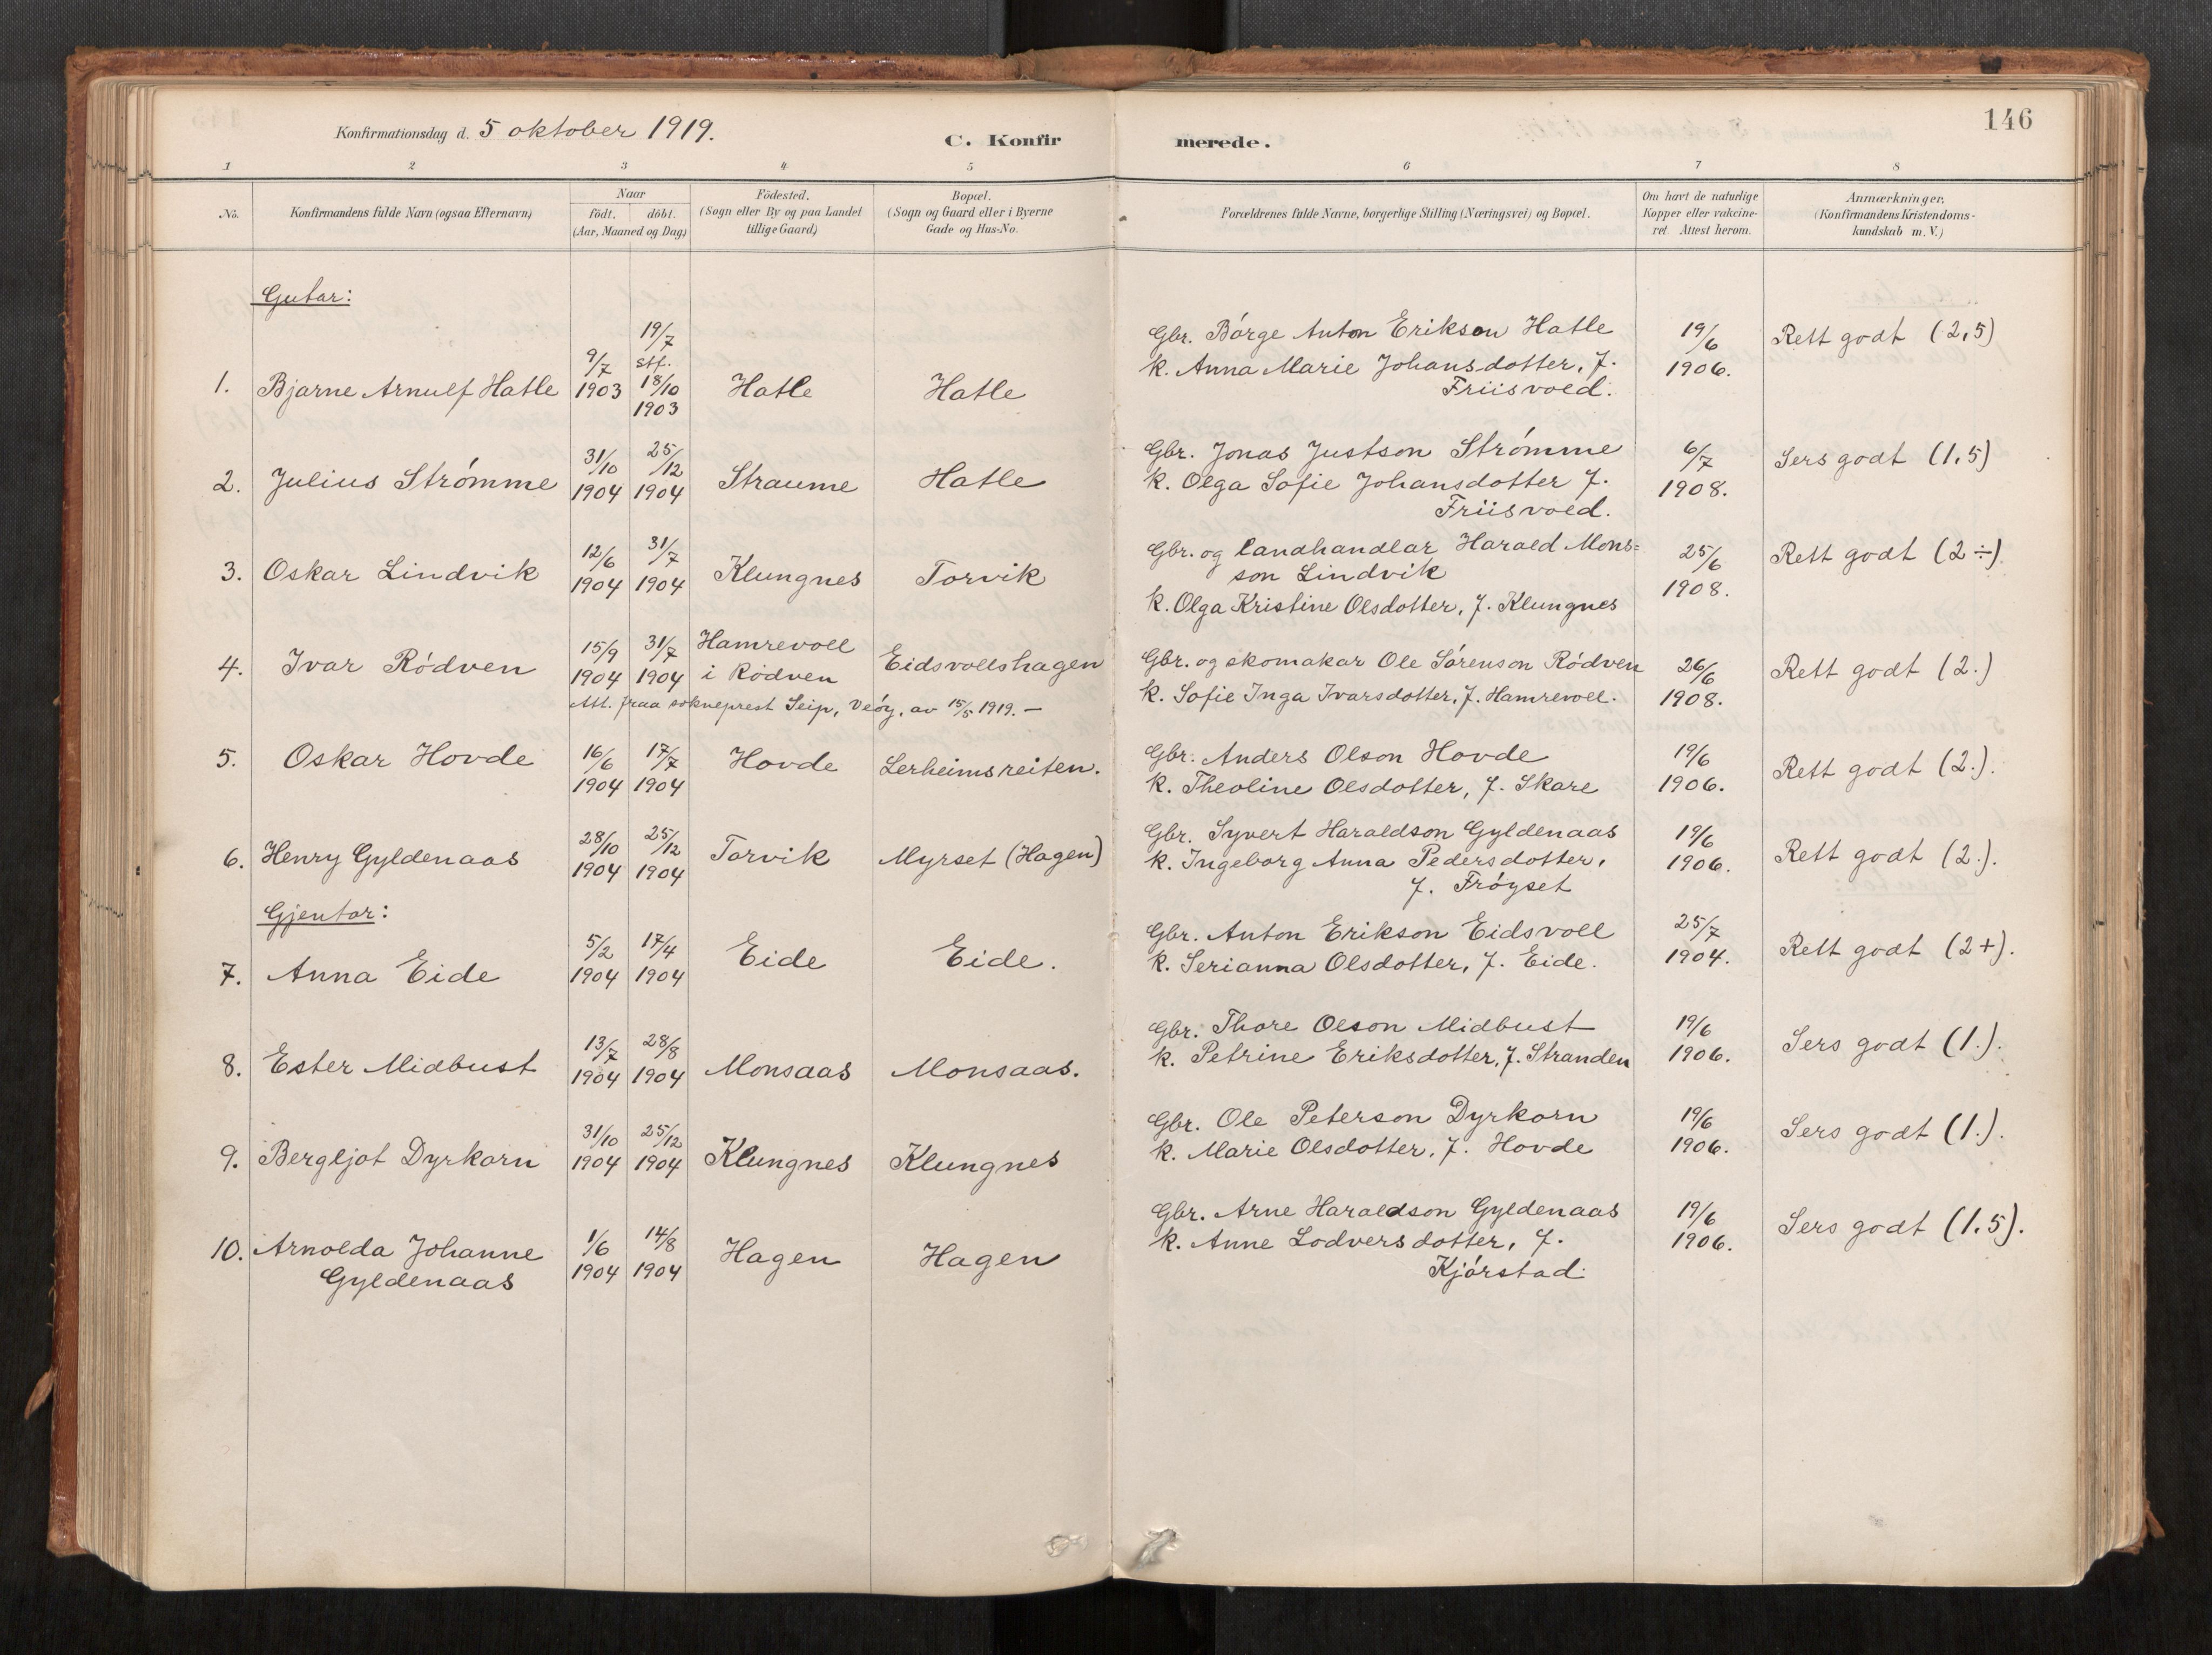 146
Konfirmationsdag d. 5 oktober 1919.
C. Konfirmerede.
1 2 3 4 5 6 7 8
No.
Konfirmandens fulde Navn (ogsaa Efternavn)
Naar
födt. döbt.
(Aar, Maaned og Dag)
Födested.
(Sogn eller By og paa Landet
tillige Gaard)
Bopæl.
(Sogn og Gaard eller i Byerne
Gade og Hus-No.
Forældrenes fulde Navne, borgerlige Stilling (Næringsvei) og Bopæl.
Om havt de naturlige
Kopper eller vakcine-
ret. Attest herom.
Anmærkninger,
(Konfirmandens Kristendoms-
kundskab m. V.)
Gutar:
1. Bjarne Arnulf Hatle
9/7
1903
19/7
stf.
18/10
1903
Hatle
Hatle
Gbr. Börge Anton Erikson Hatle
k. Anna Marie Johansdotter, f.
Friisvold.
19/6
1906.
Rett godt (2,5)
2. Julius Strömme
31/10
1904
25/12
1904
Straume
Hatle
Gbr. Jonas Justson Strömme
k. Olga Sofie Johansdotter f.
Friisvold.
6/7
1908.
Sers godt (1.5)
3. Oskar Lindvik
12/6
1904
31/7
1904
Klungnes
Torvik
Gbr. og landhandlar Harald Mons=
son Lindvik
k. Olga Kristine Olsdotter, f. Klungnes
25/6
1908.
Rett godt (2÷).
4. Ivar Rödven
15/9
1904
31/7
1904
Hamrevoll
i Rödven
Eidsvollshagen
Att. fraa sokneprest Seip, Veöy, av 15/5 1919. —
Gbr. og skomakar Ole Sörenson Rödven
k. Sofie Inga Ivarsdotter, f. Hamrevoll.
26/6
1908.
Rett godt (2.)
5. Oskar Hovde
16/6
1904
17/7
1904
Hovde
Lerheimsreiten.
Gbr. Anders Olson Hovde
k. Theoline Olsdotter, f. Skare
19/6
1906.
Rett godt (2.).
6. Henry Gyldenaas
28/10
1904
25/12
1904
Torvik
Myrset (Hagen)
Gbr. Syvert Haraldson Gyldenaas
k. Ingeborg Anna Pedersdotter,
f. Fröyset
19/6
1906.
Rett godt (2.).
Gjentor:
7. Anna Eide
5/2
1904
17/4
1904
Eide
Eide.
Gbr. Anton Erikson Eidsvoll
k. Serianna Olsdotter, f. Eide.
25/7
1904.
Rett godt (2+).
8. Ester Midbust
13/7
1904
28/8
1904
Monsaas
Monsaas.
Gbr. Thore Olson Midbust
k. Petrine Eriksdotter, f. Stranden
19/6
1906.
Sers godt (1.).
9. Bergljot Dyrkorn
31/10
1904
25/12
1904
Klungnes
Klungnes
Gbr. Ole Peterson Dyrkorn
k. Marie Olsdotter, f. Hovde
19/6
1906.
Sers godt (1.).
10. Arnolda Johanne
Gyldenaas
1/6
1904
14/8
1904
Hagen
Hagen
Gbr. Arne Haraldson Gyldenaas
k. Anne Lodversdotter, f.
Kjörstad.
19/6
1906.
Sers godt (1.5).